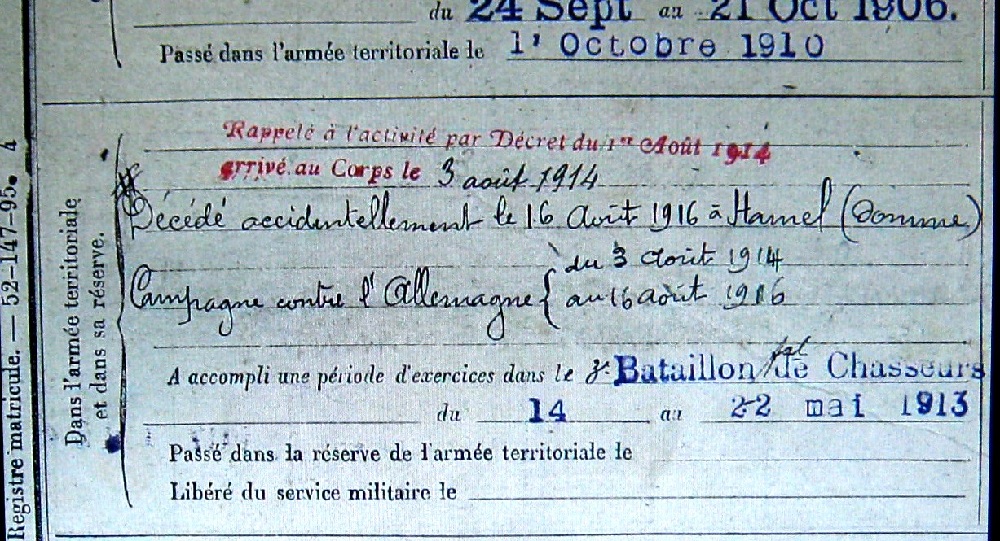 du 24 Sept au 21 Oct 1906.
Passé dans l'armée territoriale le 1' Octobre 1910
Rappelé à l'activité par Décret du 1er Août 1914
arrivé au Corps le 3 août 1914
Décédé accidentellement le 16 Août 1916 à Hamel (Somme)
Campagne contre l'Allemagne { du 3 Août 1914
au 16 août 1916
A accompli une période d'exercices dans le Bataillon de Chasseurs
du 14 au 22 mai 1913
Passé dans la réserve de l'armée territoriale le
Libéré du service militaire le
Dans l'armée territoriale
et dans sa réserve.
Registre matricule. — 52-147-95. 4